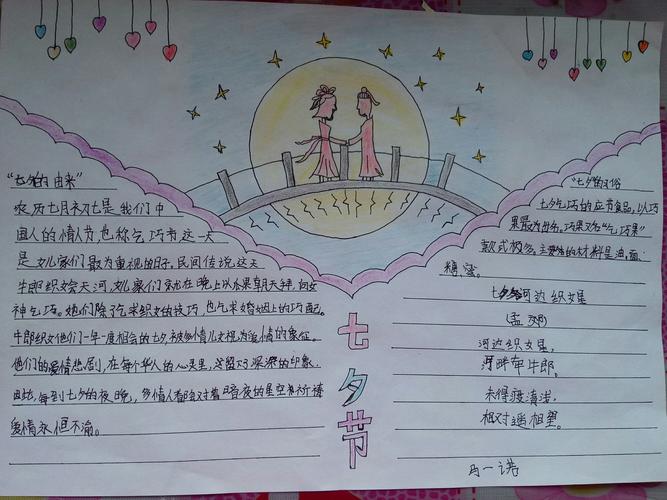 "七夕的由来"
农历七月初七是我们中
国人的情人节也称乞巧节这一天
是女儿家们最为重视的日子,民间传说这天
牛郎织女会天河,女儿家们就在晚上以瓜果朝天拜,向女
神乞巧。她们除了乞求织女的技巧,也乞求婚姻上的巧配。
牛郎织女他们一年一度相会的七夕,被多情儿女视为爱情的象征。
他们的爱情悲剧,在每个华人的心灵里,
深深的印象.
因此,每到七夕的夜晚,多情人都会对着暗夜的星空祈祷
爱情永恒不渝。
七夕节
"七夕的习俗
七夕乞巧的应节食品,以巧
果最为出名,巧果又名"乞巧果"
款式极多,主要的材料是油,面,
糖,蜜。
河边织女星
(孟郊)
河边织女星,
河畔牵牛郎。
未得渡清浅,
相对遥相望。